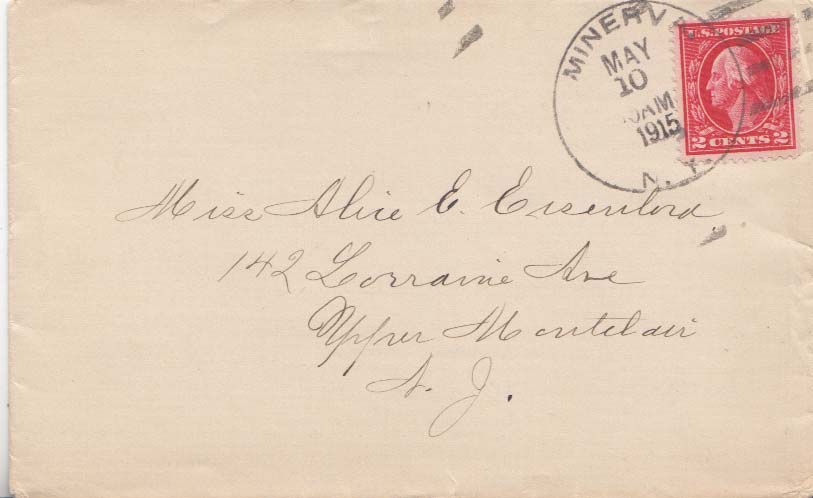 MINERVA
MAY
10
AM
1915
N. Y.
U.S. POSTAGE
2 CENTS 2
Miss Alice E. Eisenlord,
142 Lorraine Ave
Upper Montclair
N. J.